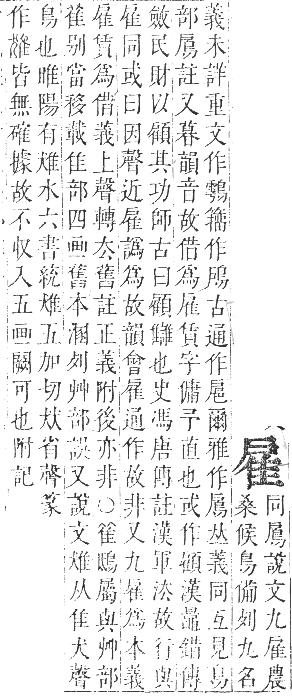 雇
同鳸說文九雇農
桑候鳥備列九名
義未詳重文作籀作鳸古通作扈爾雅作鳸𠀤義同互見鳥
部鳸註又暮韻音故借為雇賃字傭予直也或作顧漢鼂錯傳
斂民財以顧其功師古曰顧讎也史馮唐傳註漢軍法故行與
雇同或曰因聲近雇譌為故韻會雇通作故非又九雇為本義
雇賃為借義上聲轉去舊註正義附後亦非○雈鴟屬與艸部
萑別當移載隹部四画舊本溷列艸部誤又說文𨾴从隹犬聲
鳥也睢陽有𨾴水六書統𨾴五加切㹜省聲篆
作皆無確據故不收入五画闕可也附記